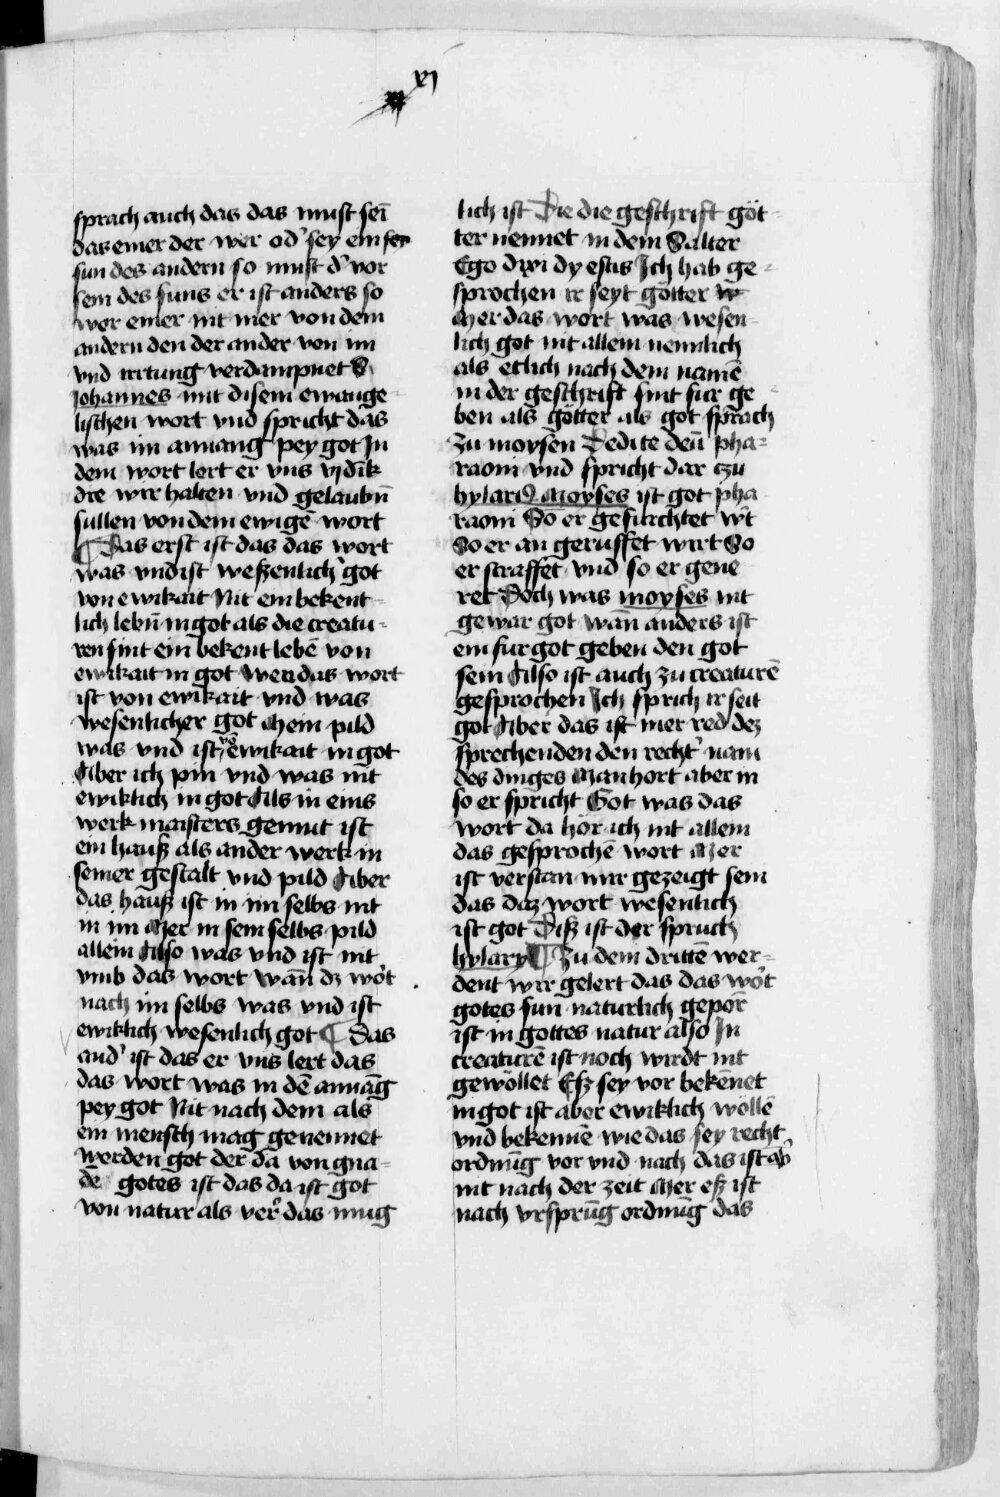 vj
sprach auch das das must sei̅
das einer der wer od' sey ein
sun des andern so must d' vor
sein des suns er ist anders so
wer einer nit mer von dem
andern den der ander von im
vnd irrtung verdampnet S
Johannes mit disem ewange-
lischen wort vnd spricht das
was im anuang pey got In
dem wort lert er vns
die wir halten vnd gelaubn̅
sullen von dem ewige̅ wort
¶ Das erst ist das das wort
was vnd ist weßenlich got
von ewikait Nit ein bekent-
lich lebn̅ in got als die creatu-
ren sint ein bekent lebe̅ von
ewikait in got Wen das wort
ist von ewikait vnd was
wesenlicher got Mein pild
was vnd ist vo̅ ewikait in got
Aber ich pin vnd was nit
ewiklich in got Als in eins
werk maisters gemut ist
ein hauß als ander werk in
seiner gestalt vnd pild Aber
das hauß ist in im selbs nit
in im Mer in sein selbs pild
allein Also was vnd ist nit
vmb das wort wan̅ dz wo't
nach im selbs was vnd ist
ewiklich wesenlich got ¶ Das
and' ist das er vns lert das
das wort was in de̅ anua̅g
pey got Nit nach dem als
ein mensch mag genennet
werden got der da von gna-
de̅ gotes ist das da ist got
von natur als ver' das mug
lich ist Die die geschrift göt-
ter nennet in dem Salter
Ego dixi dy estis Ich hab ge-
sprochen ir seyt götter
Mer das wort was wesen-
lich got nit allein nemlich
als etlich nach dem name̅
in der geschrift sint fur ge-
ben als götter als got sprach
zu moysen Dedite deu̅ pha-
raoni vnd spricht dar czu
hylari9 Moyses ist got pha
raoni So er gefurchtet w't
So er an geruffet wirt So
er straffet vnd so er gene
ret Doch was moyses nit
gewar got wan̅ anders ist
ein fur got geben den got
sein Also ist auch zu creature̅
gesprochen Ich sprich ir seit
got Aber das ist mer red dez
sprechenden den recht' nam
des dinges Man hort aber in
so er spricht Got was das
wort da hör ich nit allein
das gesproche̅ wort Mer
ist verstan mir gezeigt sein
das daz wort wesenlich
ist got Diß ist der spruch
hylary ¶ Zu dem dritte̅ wer-
dent wir gelert das das wo't
gotes sun naturlich gepor̅
ist in gottes natur also In
creature̅ ist noch wirdt nit
gewöllet Eß sey vor beke̅net
in got ist aber ewiklich wölle̅
vnd bekenne̅ wie das sey recht
ordnu̅g vor vnd nach das ist
nit nach der zeit Mer eß ist
nach vrspru̅g ordnu̅g das